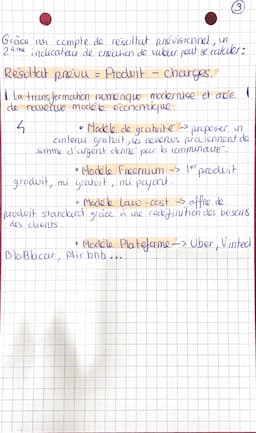 3
Grâce au compte de résultat prévisionnel, un
2ème indicateur de création de valeur peut se calculer :
Résultat prévu = Produit - charges.
! La transformation numérique modernise et crée !
de nouveaux modèle économique.
↳ • Modèle de gratuité -> proposer un
contenus gratuit, les revenus proviennent de
somme d'argent donné par la communauté.
• Modèle Freemium -> 1er produit
gratuit, mi gratuit, mi payant.
• Modèle Low-cost -> offre de
produit standard grâce à une redéfinition des besoins
des clients.
• Modèle Plateforme -> Uber, Vinted,
BlaBlacar, Air bnb...